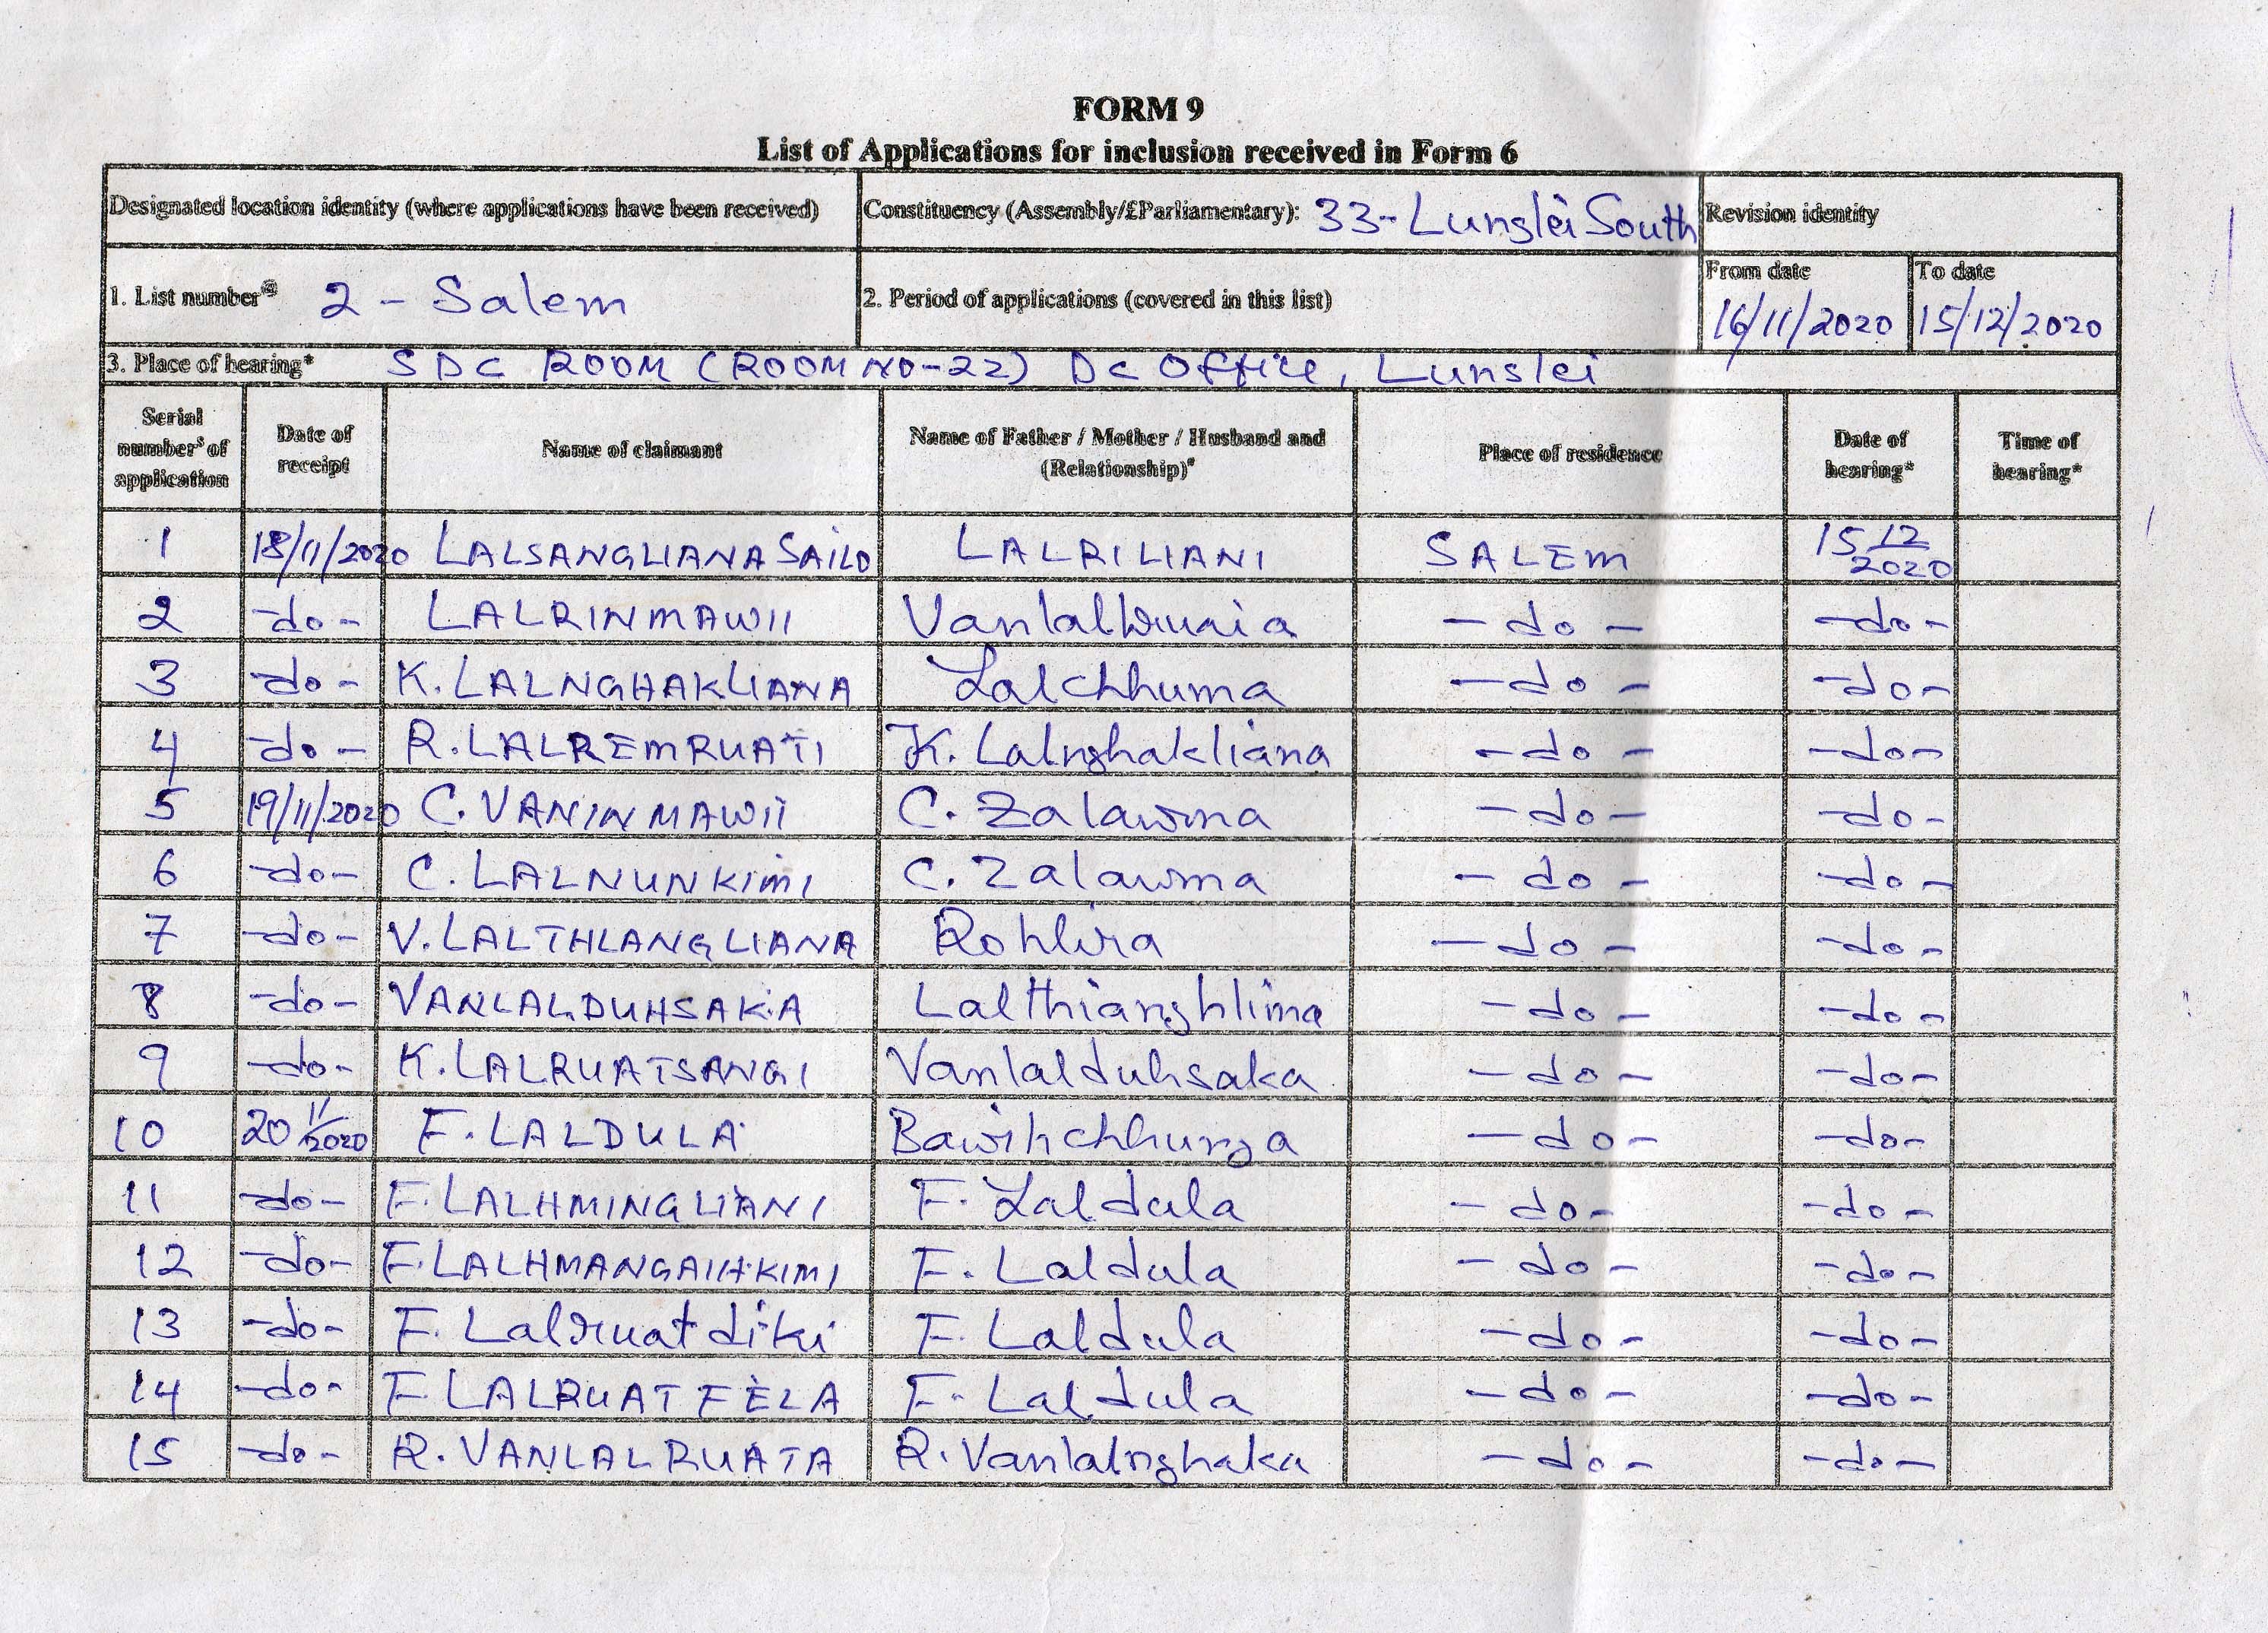 FORM 9
List of Applications for inclusion received in Form 6
Designated location identity (where applications have been received) Constituency (Assembly/£Parliamentary): 33-Lunglei South Revision identity
1. List number@ 2 - Salem 2. Period of applications (covered in this list) From date 16/11/2020 To date 15/12/2020
3. Place of hearing* SDC ROOM (ROOM NO-22) DC Office, Lunglei
Serial number$ of application Date of receipt Name of claimant Name of Father / Mother / Husband and (Relationship)# Place of residence Date of hearing* Time of hearing*
1 18/11/2020 LALSANGLIANA SAILO LALRILIANI SALEM 15 12/2020
2 -do- LALRINMAWII Vanlalhruaia -do- -do-
3 -do- K. LALNGHAKLIANA Lalchhuma -do- -do-
4 -do- R. LALREMRUATI K. Lalnghakliana -do- -do-
5 19/11/2020 C. VANINMAWII C. Zalawma -do- -do-
6 -do- C. LALNUNKIMI C. Zalawma -do- -do-
7 -do- V. LALTHLANGLIANA Rohlira -do- -do-
8 -do- VANLALDUHSAKA Lalthianghlima -do- -do-
9 -do- K. LALRUATSANGI Vanlalduhsaka -do- -do-
10 20 11/2020 F. LALDULA Bawihchhunga -do- -do-
11 -do- F. LALHMINGLIANI F. Laldula -do- -do-
12 -do- F. LALHMANGAIHKIMI F. Laldula -do- -do-
13 -do- F. Lalruatdiki F. Laldula -do- -do-
14 -do- F LALRUATFELA F. Laldula -do- -do-
15 -do- R. VANLALRUATA R. Vanlalnghaka -do- -do-